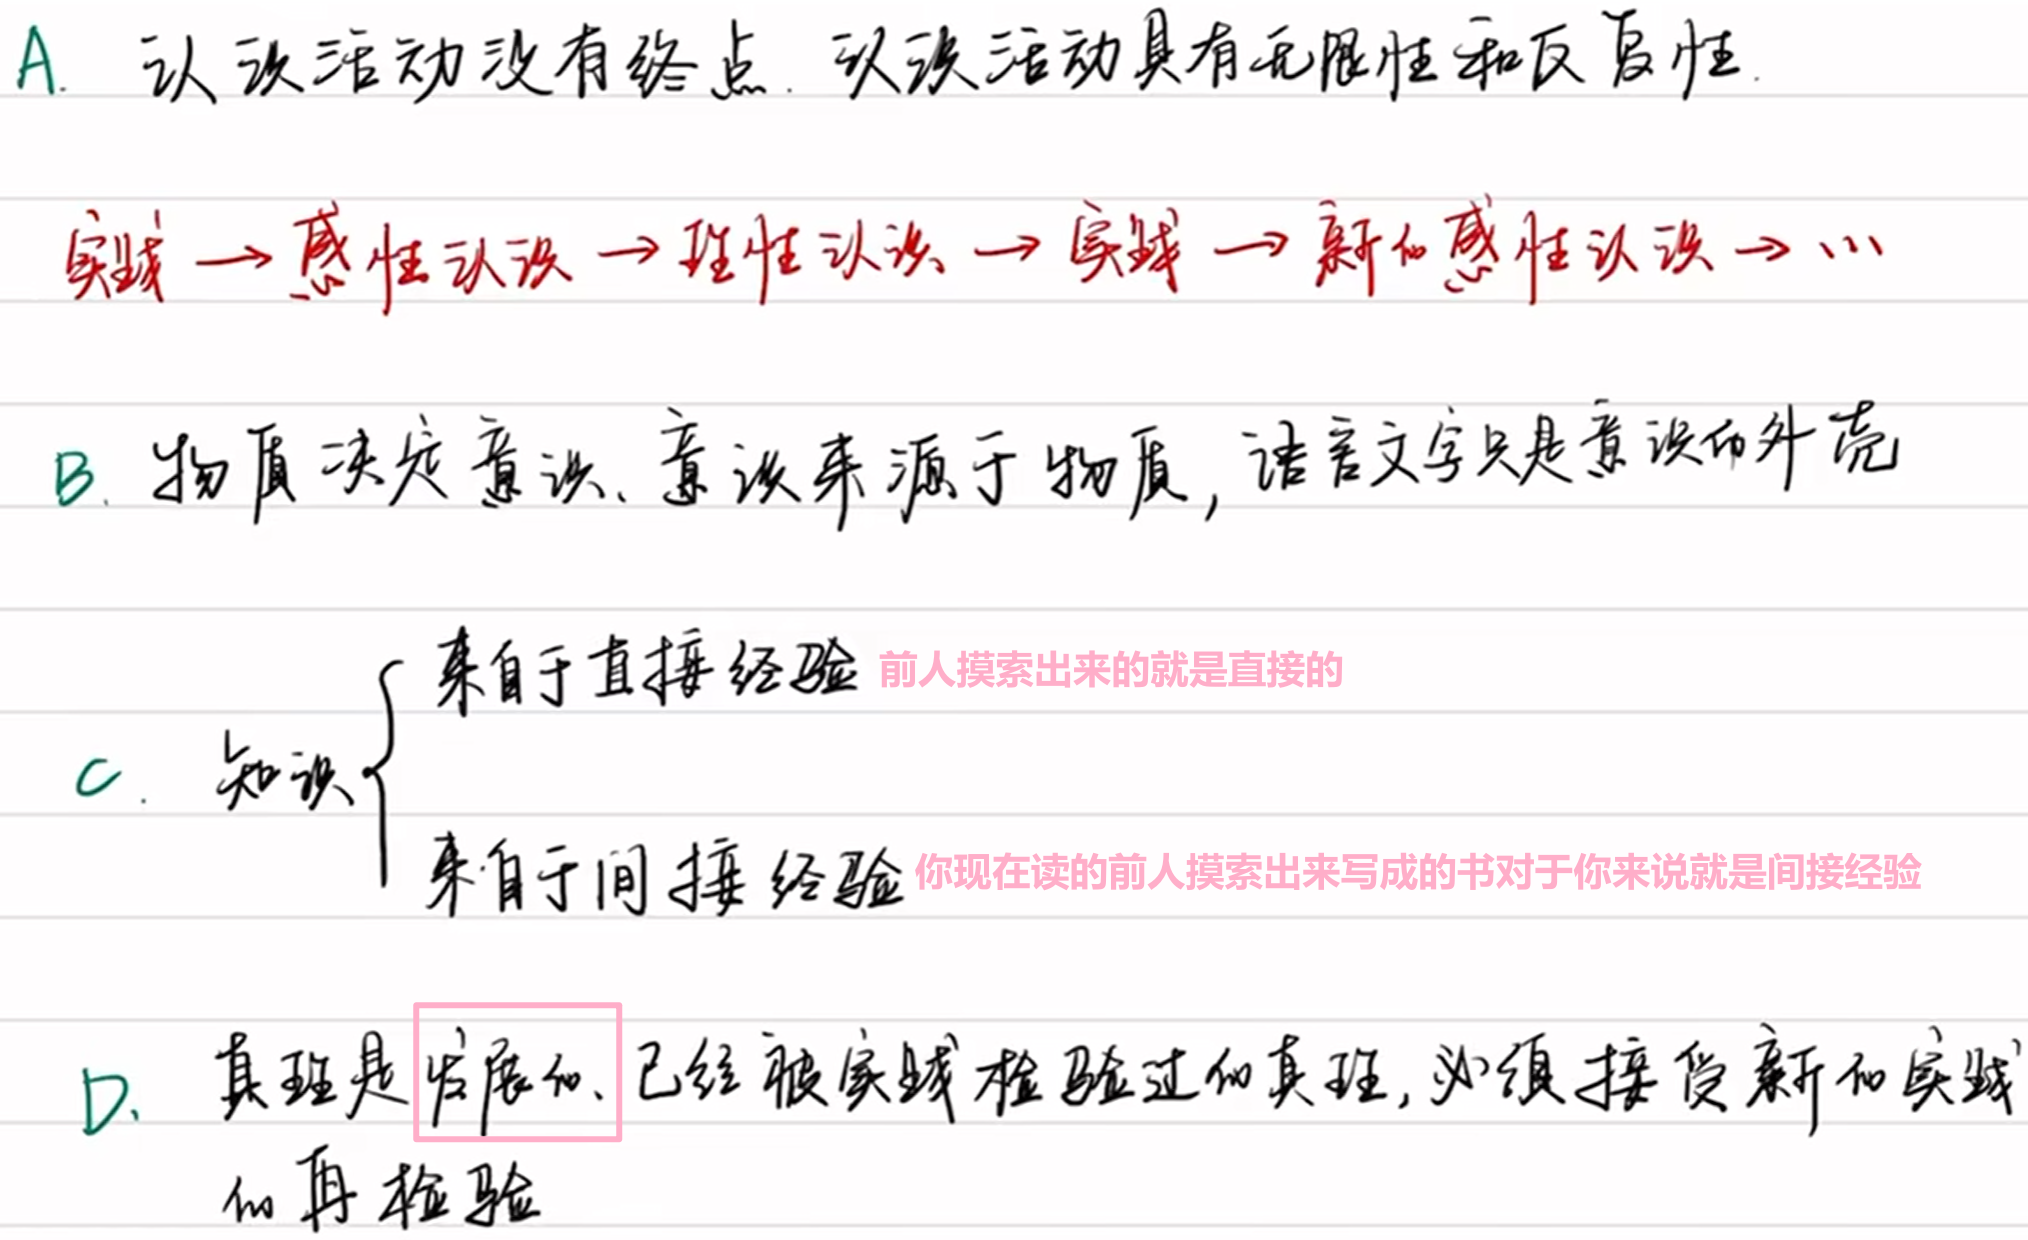 A. 认识活动没有终点. 认识活动具有无限性和反复性.
实践 → 感性认识 → 理性认识 → 实践 → 新的感性认识 → …
B. 物质决定意识、意识来源于物质, 语言文字只是意识的外壳
来自于直接经验 前人摸索出来的就是直接的
C. 知识
来自于间接经验 你现在读的前人摸索出来写成的书对于你来说就是间接经验
D. 真理是发展的、已经被实践检验过的真理, 必须接受新的实践
的再检验